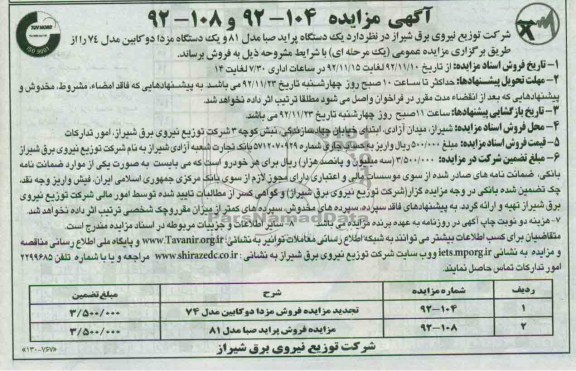 آگهی مزایده ۱۰۴-۹۲ و ۱۰۸-۹۲
شرکت توزیع نیروی برق شیراز در نظر دارد یک دستگاه پراید صبا مدل ۸۱ و یک دستگاه مزدا دو کابین مدل ۷۴ را از
طریق برگزاری مزایده عمومی (یک مرحله ای) با شرایط مشروحه ذیل به فروش برساند.
۱- تاریخ فروش اسناد مزایده: از تاریخ ۹۲/۱۱/۱۰ لغایت ۹۲/۱۱/۱۵ در ساعات اداری ۷/۳۰ لغایت ۱۴
۲- مهلت تحویل پیشنهادها: حداکثر تا ساعت ۱۰ صبح روز چهارشنبه تاریخ ۹۲/۱۱/۲۳ می باشد. به پیشنهادهایی که فاقد امضاء، مشروط، مخدوش و
پیشنهادهایی که بعد از انقضاء مدت مقرر در فراخوان واصل می شود مطلقا ترتیب اثر داده نخواهد شد.
۳- تاریخ بازگشایی پیشنهادها: ساعت ۱۱ صبح روز چهارشنبه تاریخ ۹۲/۱۱/۲۳ می باشد.
۴- محل فروش اسناد مزایده: شیراز، میدان آزادی، ابتدای خیابان چهل سازندگی، نبش کوچه ۳ شرکت توزیع نیروی برق شیراز، امور تدارکات
۵- قیمت فروش اسناد مزایده: مبلغ ۵۰۰/۰۰۰ ریال واریز به حساب جاری شماره ۵۷۱۲۰۷۰۹۲۹ بانک تجارت شعبه آزادی شیراز به نام شرکت توزیع نیروی برق شیراز
۶- مبلغ تضمین شرکت در مزایده: ۳/۵۰۰/۰۰۰ (سه میلیون و پانصد هزار) ریال برای هر خودرو است که می بایست به صورت یکی از موارد ضمانت نامه
بانکی، ضمانت نامه های صادر شده از سوی موسسات مالی و اعتباری دارای مجوز لازم از سوی بانک مرکزی جمهوری اسلامی ایران، فیش واریز وجه نقد
چک تضمین شده بانکی در وجه مزایده گزار (شرکت توزیع نیروی برق شیراز) و گواهی کسر از مطالبات تایید شده توسط امور مالی شرکت توزیع نیروی
برق شیراز تهیه و ارائه گردد. به پیشنهادهای فاقد سپرده، سپرده های مخدوش، سپرده های کمتر از میزان مقرر و چک شخصی ترتیب اثر داده نخواهد شد.
۷- هزینه دو نوبت چاپ آگهی در روزنامه به عهده برنده مزایده می باشد ۸- سایر اطلاعات و جزییات مربوطه در اسناد مزایده مندرج است.
متقاضیان برای کسب اطلاعات بیشتر می توانند به شبکه اطلاع رسانی معاملات توانیر به نشانی: www.Tavanir.org.ir و پایگاه ملی اطلاع رسانی مناقصه
و مزایده به نشانی iets.mporg.ir و وب سایت شرکت توزیع نیروی برق شیراز به نشانی: www.shirazedc.co.ir مراجعه و یا با شماره تلفن ۲۲۹۹۶۸۵
امور تدارکات تماس حاصل نمایند.
ردیف شماره مزایده شرح مبلغ تضمین
۱ ۹۲-۱۰۴ تجدید مزایده فروش مزدا دو کابین مدل ۷۴ ۳/۵۰۰/۰۰۰
۲ ۹۲-۱۰۸ مزایده فروش پراید صبا مدل ۸۱ ۳/۵۰۰/۰۰۰
شرکت توزیع نیروی برق شیراز
«۱۳۰۰۷۶۷»
ParsNamadData
ISO 9001